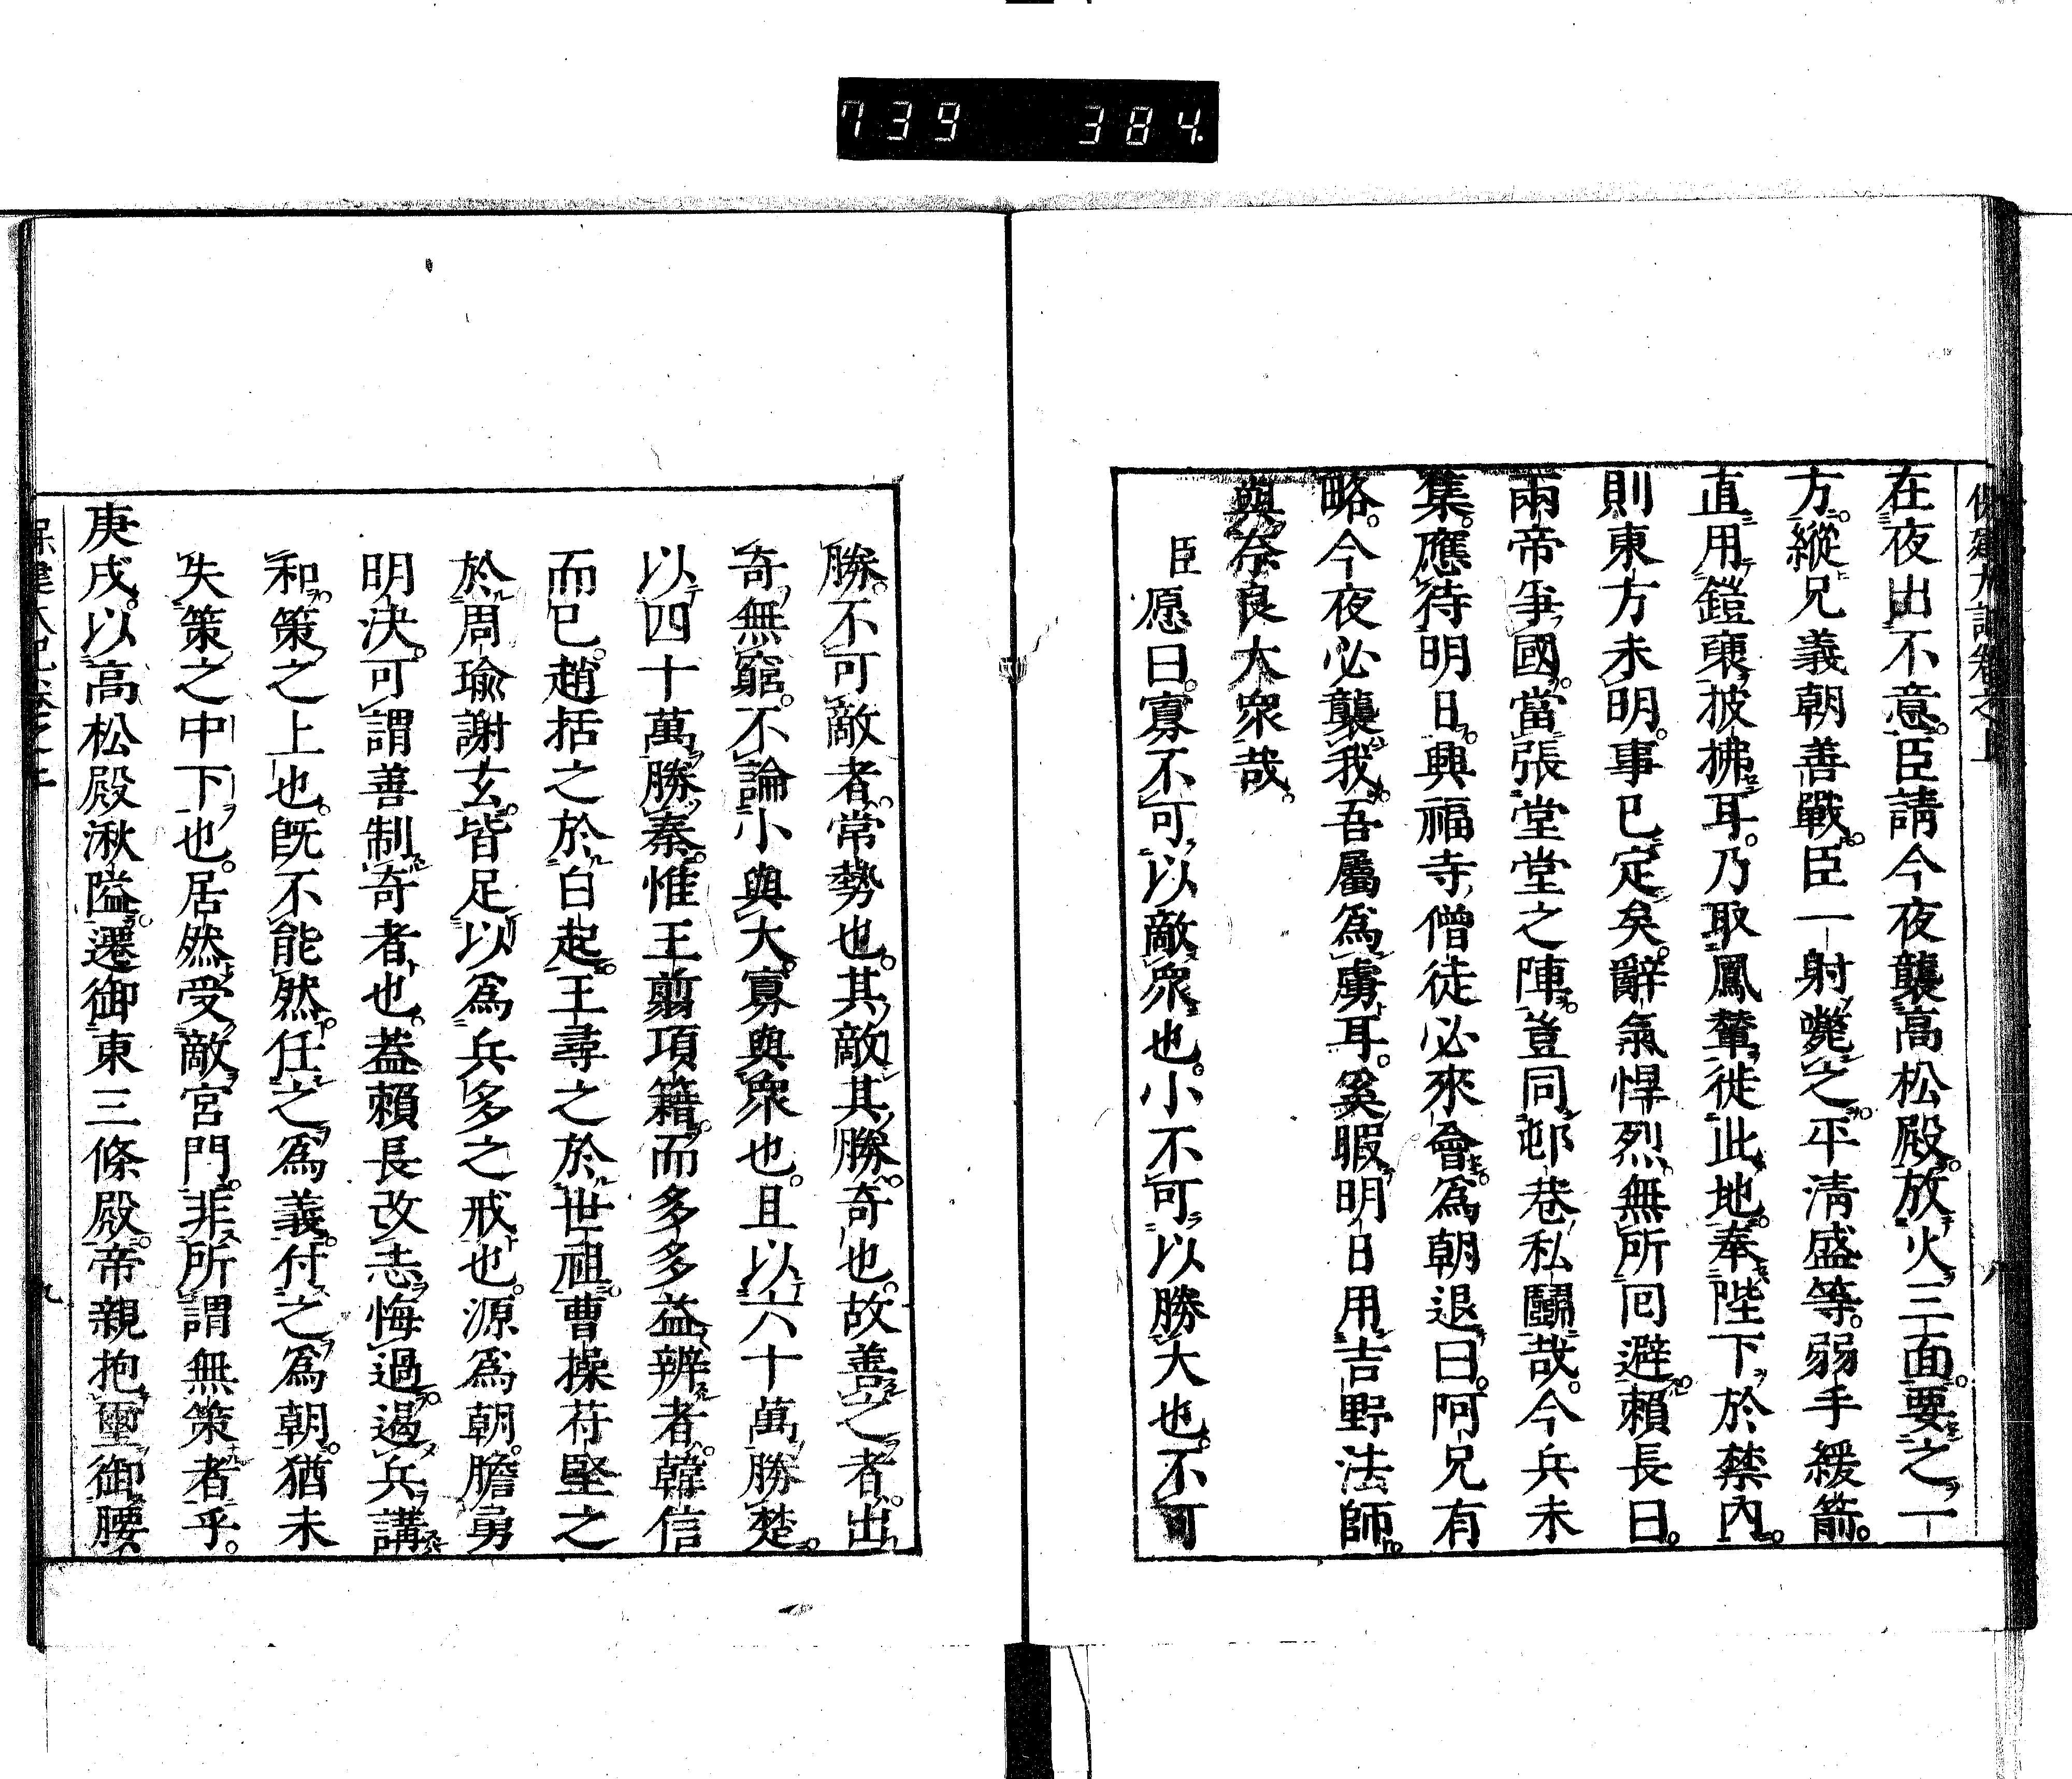 739 384
保建大記卷之上 八
在夜出不意。臣請今夜襲高松殿。放火三面。要之一
方。縱兄義朝善戰。臣一射斃之。平淸盛等。弱手緩箭。
直用鎧褏披拂耳。乃取鳳輦徙此地。奉陛下於禁內。
則東方未明。事已定矣。辭氣悍烈。無所回避。賴長曰。
兩帝爭國。當張堂堂之陣。豈同邨巷私鬭哉。今兵未
集。應待明日。興福寺僧徒必來會。爲朝退曰。阿兄有
略。今夜必襲我。吾屬爲虜耳。奚暇明日用吉野法師。
與奈良大衆哉。
臣愿曰。寡不可以敵衆也。小不可以勝大也。不可
勝。不可敵者。常勢也。其敵其勝。奇也。故善之者。出
奇無窮。不論小與大。寡與衆也。且以六十萬勝楚。
以四十萬勝秦。惟王翦項籍。而多多益辨者。韓信
而已。趙括之於白起。王尋之於世祖。曹操苻堅之
於周瑜謝玄。皆足以爲兵多之戒也。源爲朝。膽勇
明決。可謂善制奇者也。蓋賴長改志悔過。遏兵講
和。策之上也。旣不能然。任之爲義。付之爲朝。猶未
失策之中下也。居然受敵宮門。非所謂無策者乎。
庚戌。以高松殿湫隘。遷御東三條殿。帝親抱璽御腰
保建大記卷之上 九